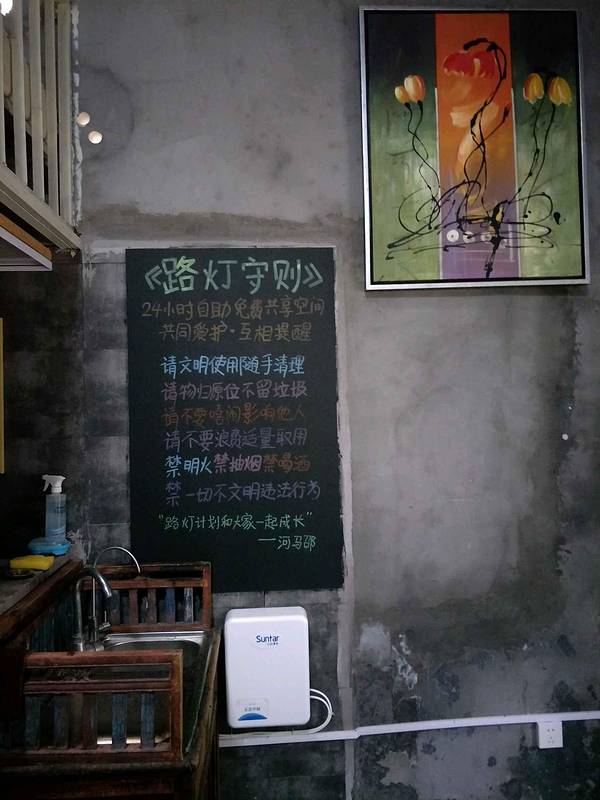 《路灯守则》
24小时自助免费共享空间
共同爱护·互相提醒
请文明使用随手清理
请物归原位不留垃圾
请不要嘻闹影响他人
请不要浪费适量取用
禁明火禁抽烟禁喝酒
禁一切不文明违法行为
“路灯计划和大家一起成长”
—河马邵
Suntar